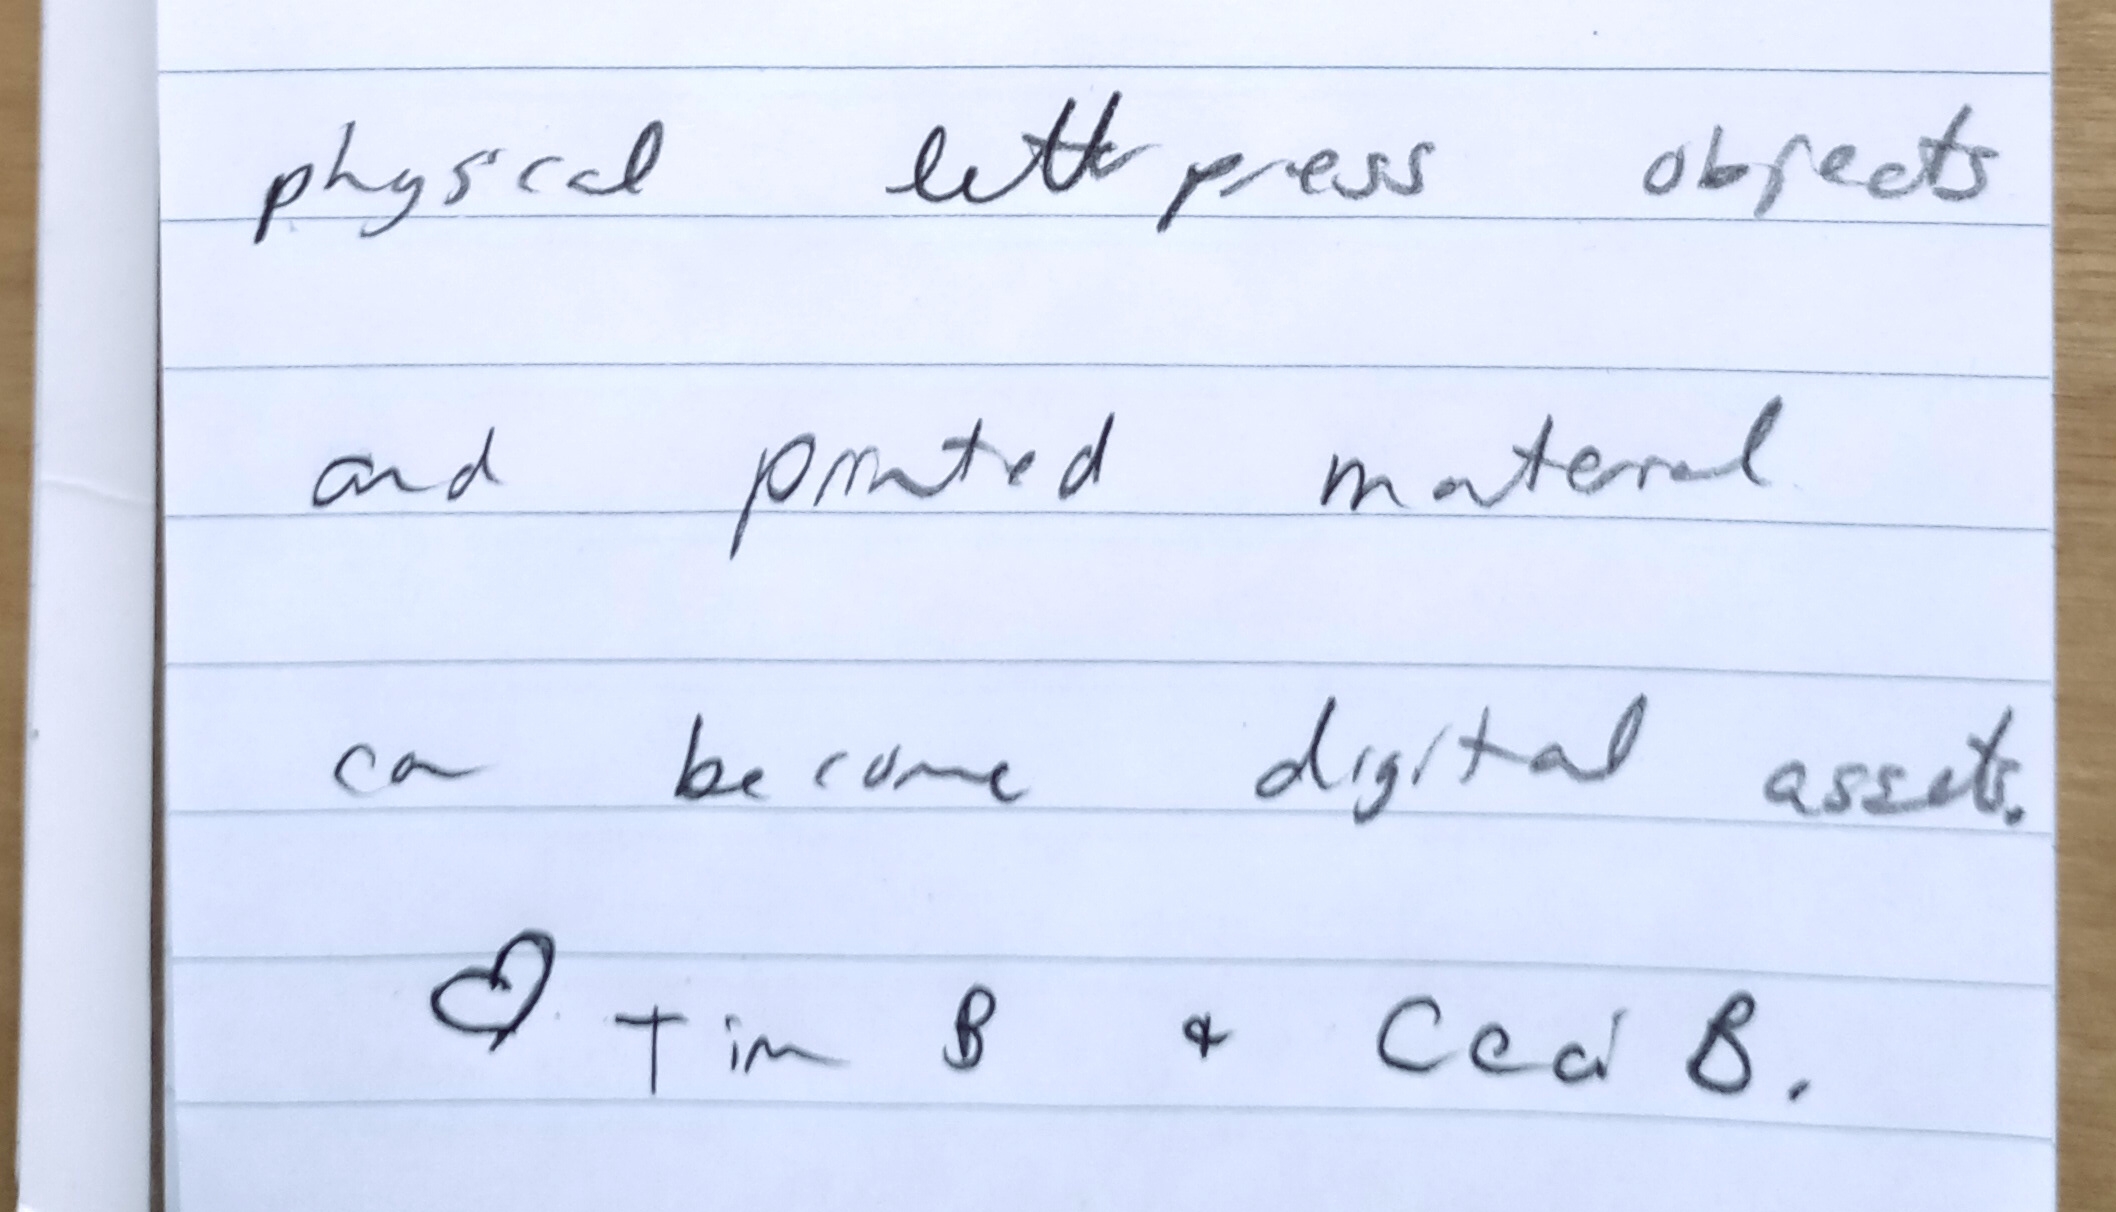 physical letterpress objects
and printed material
can become digital assets.
♡ Tim B & Ceci B.